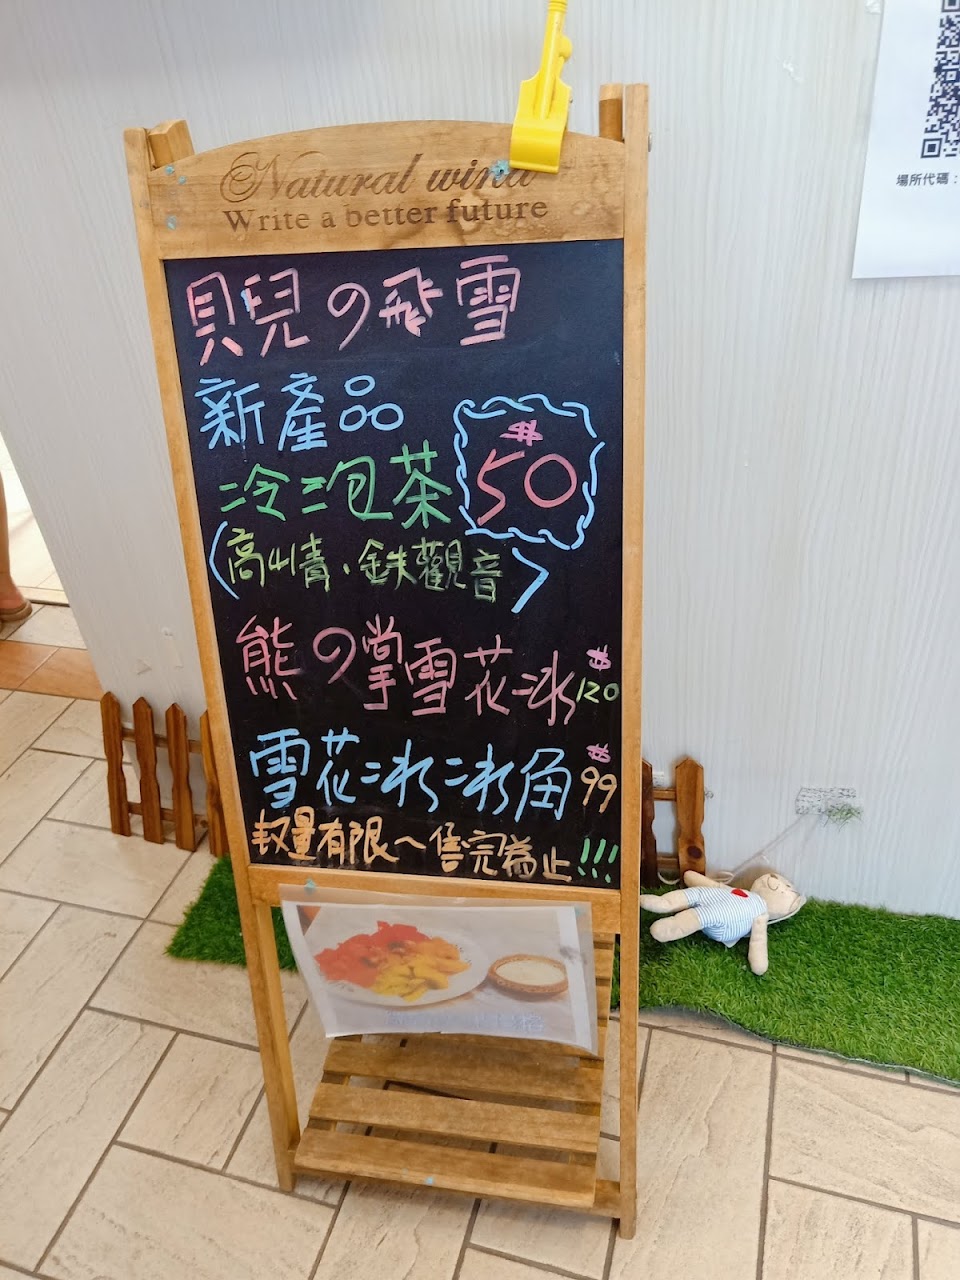 Natural wind
Write a better future
貝兒の飛雪
新產品
冷泡茶 $50
(高山青、鉄觀音)
熊の掌雪花冰 $120
雪花冰冰角 $99
數量有限~售完為止!!!
場所代碼：